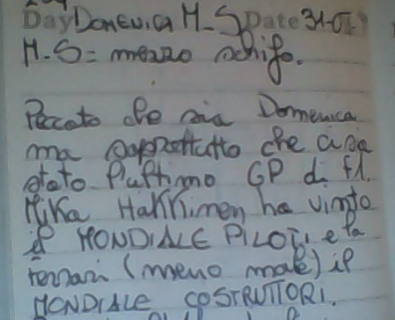 Day DOMENICA M-S Date 31-01
M-S = mezzo schifo.
Peccato che sia Domenica
ma soprattutto che ci sia
stato l'ultimo GP di F1.
Mika Hakkinen ha vinto
il MONDIALE PILOTI e la
Ferrari (meno male) il
MONDIALE COSTRUTTORI.